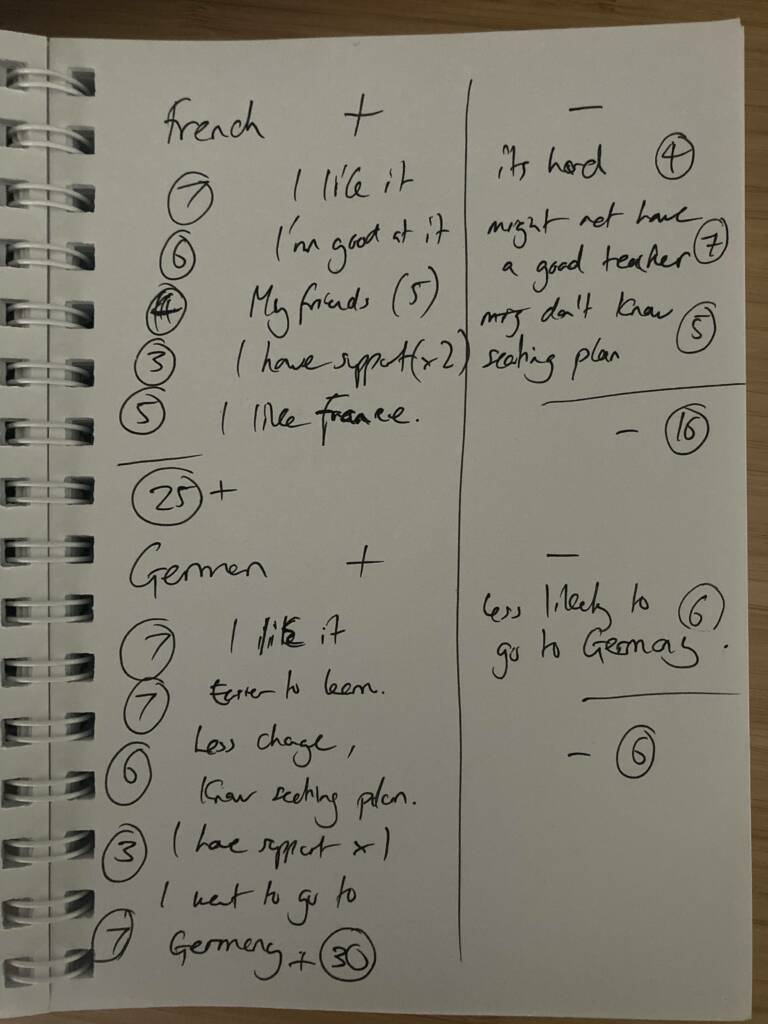 French +
7 I like it
6 I'm good at it
4 My friends (5)
3 I have support (x2)
5 I like France.
25 +
-
its hard 4
might not have
a good teacher 7
don't know
seating plan 5
- 16
German +
7 I like it
7 Easier to learn.
6 Less change,
know seating plan.
3 I have support x1
I want to go to
7 Germany + 30
-
Less likely to 6
go to Germany.
- 6